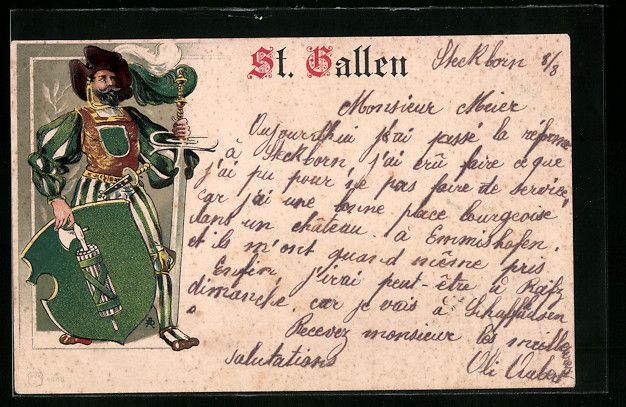 St. Gallen
Steckborn 8/8
Monsieur Meier
Aujourd'hui j'ai passé la réforme
à Steckborn, j'ai crû faire ce que
j'ai pu pour ne pas faire de service,
car j'ai une bonne place bourgeoise
dans un château à Emmishofen,
et ils m'ont quand même pris
Enfin j'irai peut-être à
dimanche car je vais à Schaffausen
Recevez monsieur les meilleures
salutations